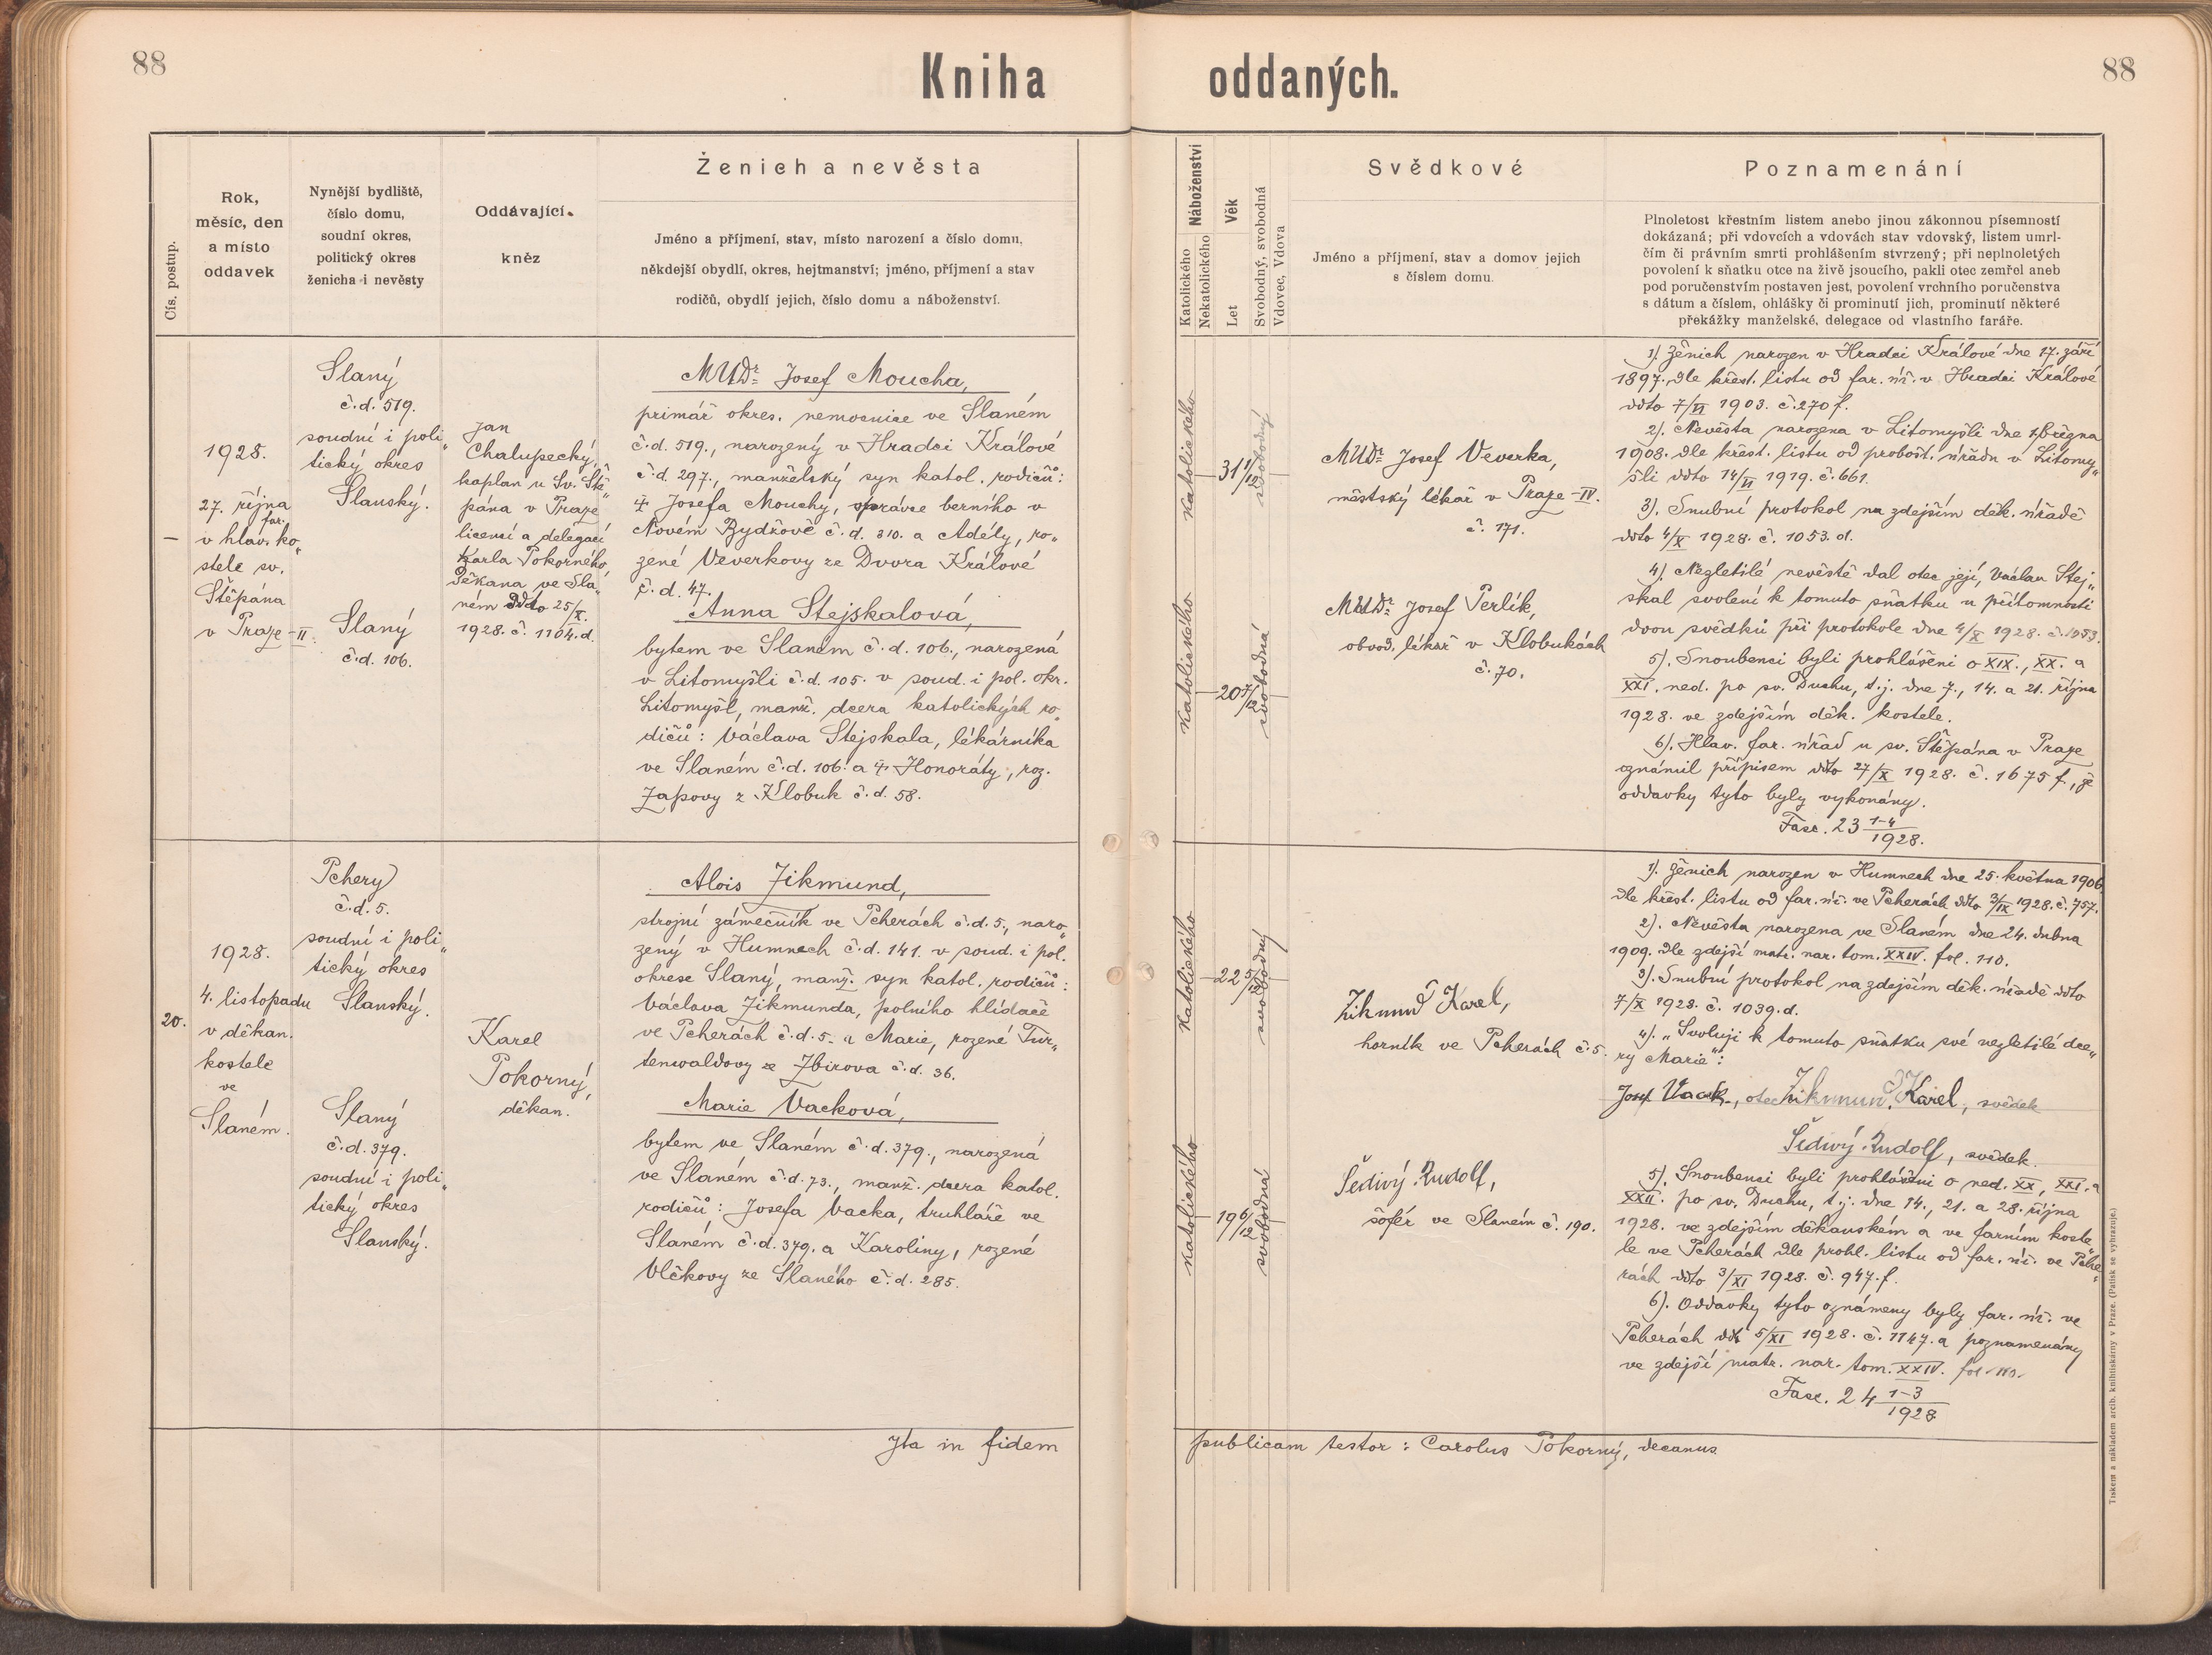 88
Kniha oddaných.
88
Čís. postup.
Rok,
měsíc, den
a místo
oddavek
Nynější bydliště,
číslo domu,
soudní okres,
politický okres
ženicha i nevěsty
Oddávající
kněz
Ženich a nevěsta
Jméno a příjmení, stav, místo narození a číslo domu,
někdejší obydlí, okres, hejtmanství; jméno, příjmení a stav
rodičů, obydlí jejich, číslo domu a náboženství.
Náboženství
Katolického
Nekatolického
Věk
Let
Svobodný, svobodná
Vdovec, Vdova
Svědkové
Jméno a příjmení, stav a domov jejich
s číslem domu.
Poznamenání
Plnoletost křestním listem anebo jinou zákonnou písemností
dokázaná; při vdovcích a vdovách stav vdovský, listem umrl-
čím či právním smrti prohlášením stvrzený; při neplnoletých
povolení k sňatku otce na živě jsoucího, pakli otec zemřel aneb
pod poručenstvím postaven jest, povolení vrchního poručenstva
s dátum a číslem, ohlášky či prominutí jich, prominutí některé
překážky manželské, delegace od vlastního faráře.
–
1928.
27. října
far.
v hlav. ko„
stele sv.
Štěpána
v Praze-II.
Slaný
č.d. 519.
soudní i poli„
tický okres
Slanský.
Slaný
č.d. 106.
Jan
Chalupecký,
kaplan u Sv. Ště„
pána v Praze
licencí a delegací
Karla Pokorného,
děkana ve Sla„
ném ddto 25/X.
1928. č. 1104.d.
MUDr. Josef Moucha,
primář okres. nemocnice ve Slaném
č.d. 519., narozený v Hradci Králové
č.d. 297., manželský syn katol. rodičů:
✝ Josefa Mouchy, správce berního v
Novém Bydžově č.d. 310. a Adély, ro„
zené Veverkovy ze Dvora Králové
č.d. 47.
Anna Stejskalová,
bytem ve Slaném č.d. 106., narozená
v Litomyšli č.d. 105. v soud. i pol. okr.
Litomyšl, manž. dcera katolických ro„
dičů: Václava Stejskala, lékárníka
ve Slaném č.d. 106. a ✝ Honoráty, roz.
Zapovy z Klobuk č.d. 58.
katolického
31 1/12
svobodný
katolického
svobodná
MUDr. Josef Veverka,
městský lékař v Praze-IV.
č. 171.
MUDr. Josef Perlík,
obvod. lékař v Klobukách
č. 70.
1). Ženich narozen v Hradci Králové dne 17. září
1897., dle křest. listu od far. úř. v Hradci Králové
ddto 7/VI 1903. č. 270 f.
2). Nevěsta narozena v Litomyšli dne března
1908. dle křest. listu od probošt. úřadu v Litomy„
šli ddto 14/VI 1919. č. 661.
3). Snubní protokol na zdejším děk. úřadě
ddto 4/X 1928. č. 1053. d.
4). Nezletilé nevěstě dal otec její, Václav Stej„
skal svolení k tomuto sňatku u přítomnosti
dvou svědků při protokole dne 4/X 1928. č. 1053.
5). Snoubenci byli prohlášeni o XIX., XX. a
XXI. ned. po sv. Duchu, t.j. dne 7., 14. a 21. října
1928. ve zdejším děk. kostele.
6). Hlav. far. úřad u sv. Štěpána v Praze
oznámil přípisem ddto 27/X 1928. č. 1675 f., že
oddavky tyto byly vykonány.
Fasc. 23 1-4/1928.
20.
1928.
4. listopadu
v děkan.
kostele
ve
Slaném.
Pchery
č.d. 5.
soudní i poli„
tický okres
Slanský.
Slaný
č.d. 379.
soudní i poli„
tický okres
Slanský.
Karel
Pokorný,
děkan.
Alois Zikmund,
strojní zámečník ve Pcherách č.d. 5., naro„
zený v Humnech č.d. 141. v soud. i pol.
okrese Slaný, manž. syn katol. rodičů:
Václava Zikmunda, polního hlídače
ve Pcherách č.d. 5. a Marie, rozené Tur„
tenwaldovy ze Zbirova č.d. 36.
Marie Vacková,
bytem ve Slaném č.d. 379., narozená
ve Slaném č.d. 73., manž. dcera katol.
rodičů: Josefa Vacka, truhláře ve
Slaném č.d. 379. a Karoliny, rozené
Vlčkovy ze Slaného č.d. 285.
katolického
22 5/12
svobodný
katolického
19 6/12
svobodná
Zikmund Karel,
horník ve Pcherách č. 5.
Šedivý Rudolf,
šofér ve Slaném č. 190.
1). Ženich narozen v Humnech dne 25. května 1906
dle křest. listu od far. úř. ve Pcherách ddto 3/IX 1928. č. 757.
2). Nevěsta narozena ve Slaném dne 24. dubna
1909. dle zdejší matr. nar. tom. XXIV. fol. 110.
3). Snubní protokol na zdejším děk. úřadě ddto
7/X 1928. č. 1039. d.
4). „Svoluji k tomuto sňatku své nezletilé dce„
ry Marie“:
Josef Vacek, otec Zikmund Karel, svědek
Šedivý Rudolf, svědek.
5). Snoubenci byli prohlášeni o ned. XX, XXI. a
XXII. po sv. Duchu, t.j. dne 14., 21. a 28. října
1928. ve zdejším děkanském a ve farním koste„
le ve Pcherách dle prohl. listu od far. úř. ve Pche„
rách ddto 3/XI 1928. č. 947. f.
6). Oddavky tyto oznámeny byly far. úř. ve
Pcherách ddto 5/XI 1928. č. 1147. a poznamenány
ve zdejší matr. nar. tom. XXIV. fol. 110.
Fasc. 24 1-3/1928
Ita in fidem publicam testor: Carolus Pokorný, decanus.
Tiskem a nákladem arcib. knihtiskárny v Praze. (Patisk se vyhrazuje.)